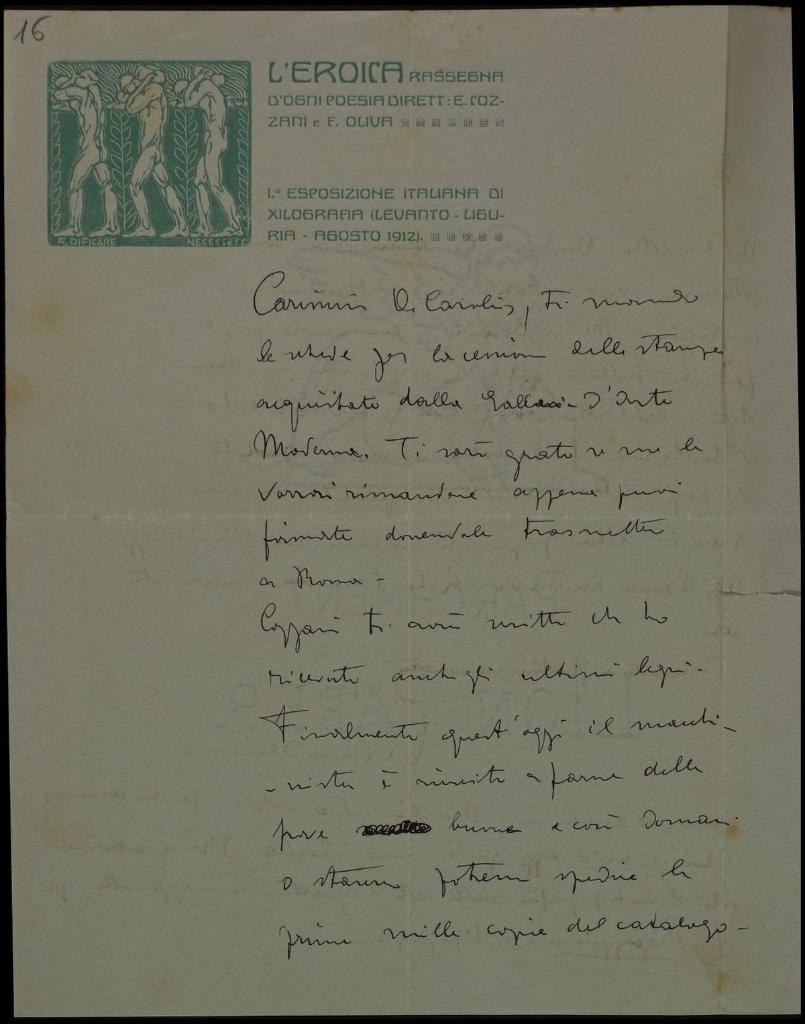 16
L'EROICA RASSEGNA
D'OGNI POESIA DIRETT: E. COZ-
ZANI e F. OLIVA
I.ª ESPOSIZIONE ITALIANA DI
XILOGRAFIA (LEVANTO - LIGU-
RIA - AGOSTO 1912).
Carissimo De Carolis, ti mando
le schede per la cessione delle stampe
acquistate dalla Galleria D'Arte
Moderna. Ti sarò grato se me le
vorrai rimandare appena puoi
firmate dovendole trasmettere
a Roma -
Cozzani ti avrà scritto che ho
ricevuto anche gli ultimi legni.
Finalmente quest'oggi il macchi-
- nista è riuscito a farne delle
prove buone e così domani
o stasera potremo spedire le
prime mille copie del catalogo -